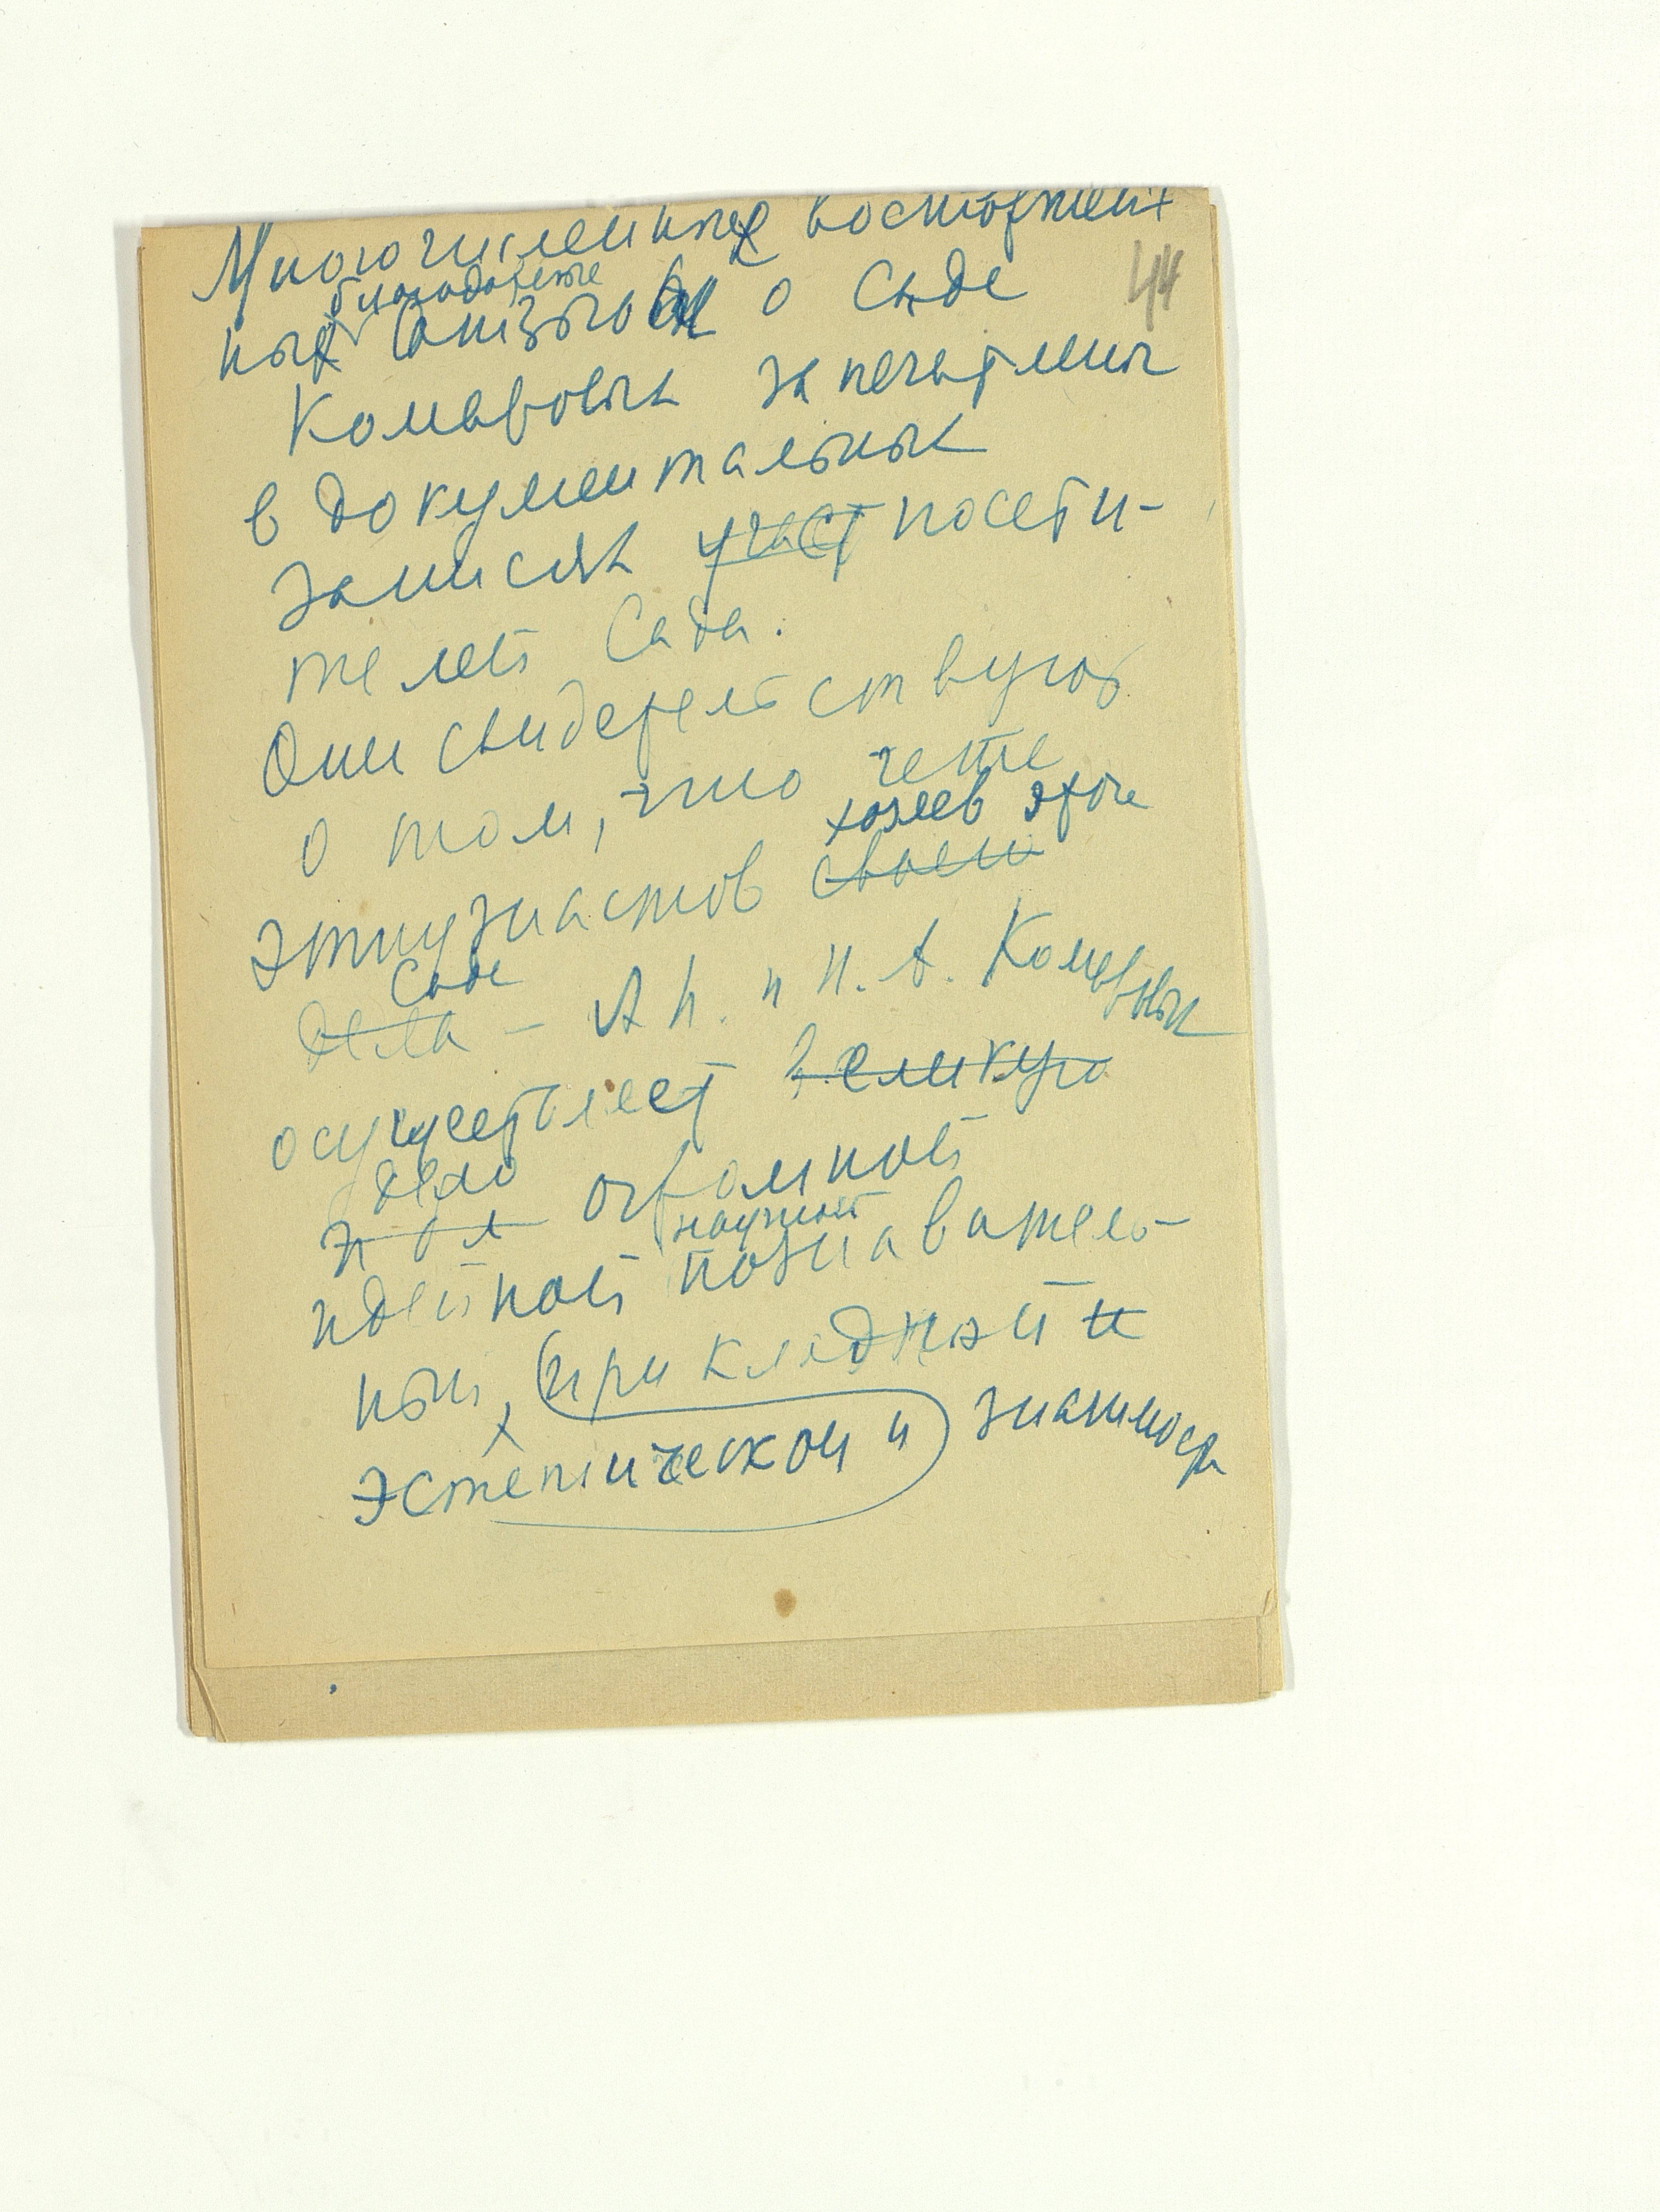 Многочисленные восторжен
44
благодарные
ные отзывы о Саде
Комаровых запечатлены
в документальных
записях участ посети-
телей Сада.
Они свидетельствуют
о том, что чете
хозяев этого
энтузиастов своего
Сада
дела – А. П. и Н. А. Комаровых
осуществляет великую
дело
огромной
научной
идейной познаватель-
ной, прикладной и
эстетической и значимости